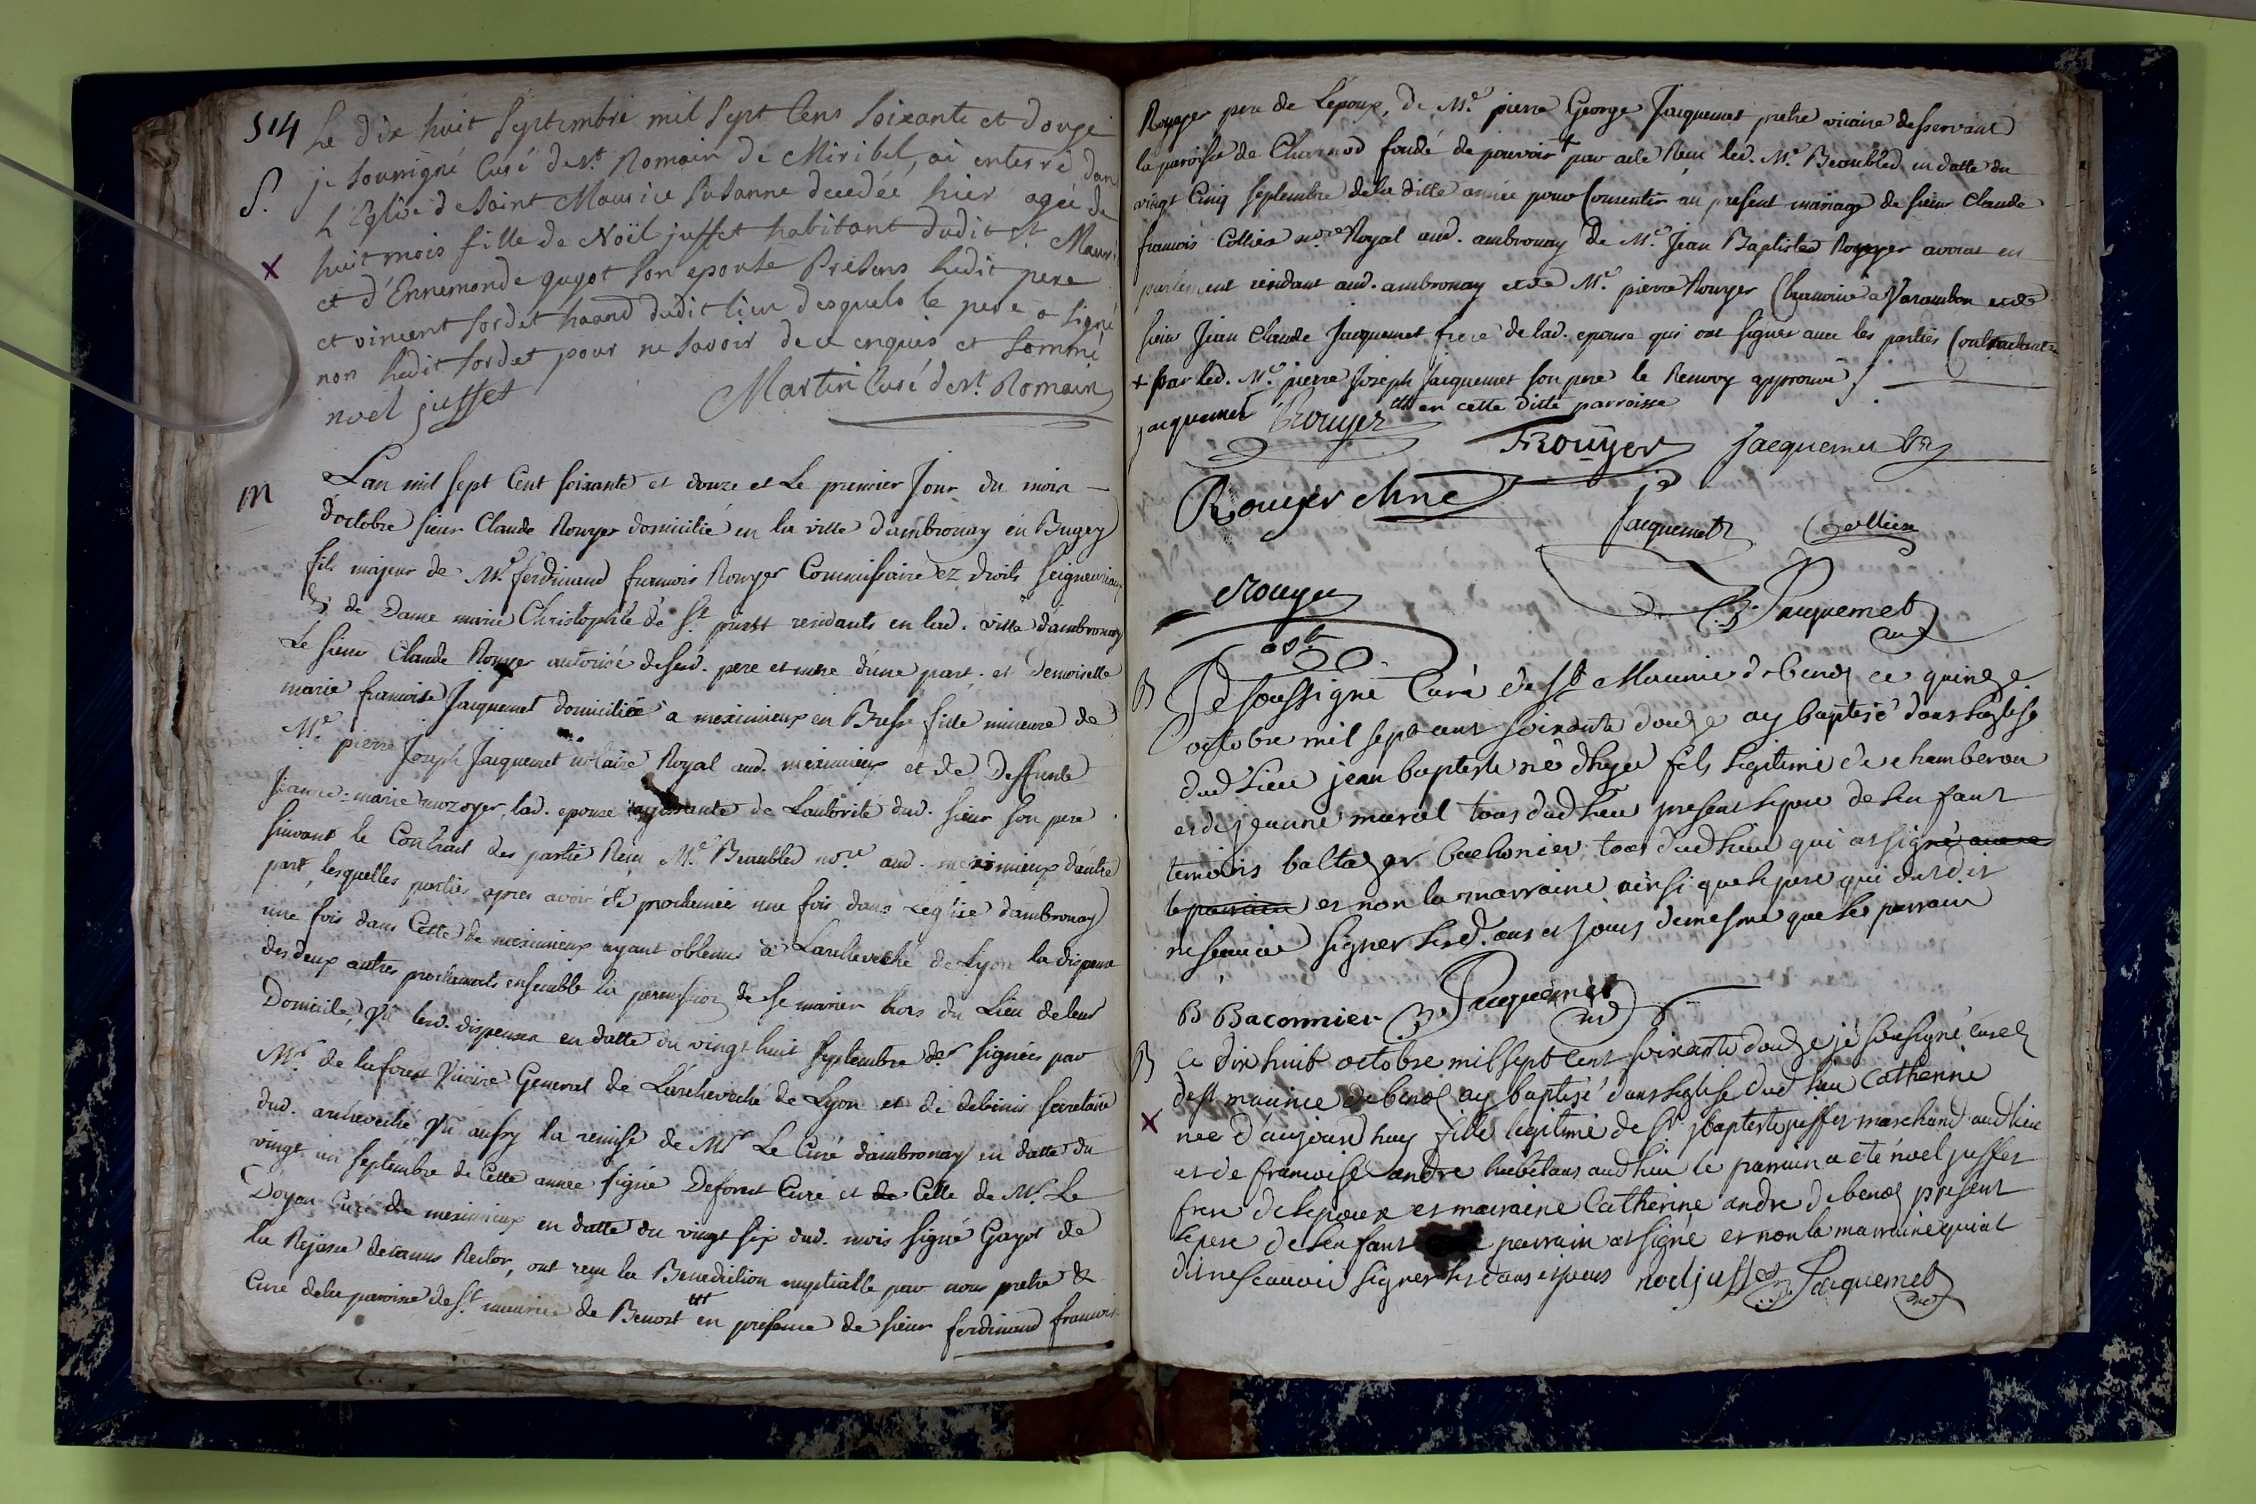 514
S.
Le dix huit Septembre mil Sept Cens Soixante et douze
je soussigné Curé de St. Romain de Miribel, ai enterré dans
L'Eglise de Saint Maurice Susanne decedée hier agée de
huit mois fille de Noël juffet habitant dudit St Mauri
et d'Ennemonde guyot son epouse Présens ledit pere
et vincent sordet haand dudit lieu desquels le pere a signé
non ledit sordet pour ne savoir de ce enquis et sommé
noel juffet Martin Curé de St. Romain
M
Lan mil sept Cent soixante et douze et Le premier Jour du mois
d'octobre sieur Claude Rouyer domicilié en la ville d'ambronay en Bugey
fils majeur de Mr. ferdinand francois Rouyer Commissaire ez droits seigneuriaux
& de Dame marie Christophle de St. residants en lad. ville d'ambronay
Le sieur Claude Rouyer autorisé desd. pere et mere d'une part. et Demoiselle
marie francoise Jacquemet domiciliée a meximieux en Bresse fille mineure de
Me. pierre Joseph Jacquemet notaire Royal aud. meximieux et de Deffunte
Jeanne-marie lad. epouse de Lautorité dud. sieur son pere
suivant le Contract des partie Recu Me. Beaubled nore. aud. meximieux d'autre
part, lesquelles parties apres avoir été proclamée une fois dans Leglise d'ambronay
une fois dans Cette de meximieux ayant obtenus de Larcheveché de Lyon la dispense
des deux autres proclamats ensemble la permission de se marier hors du Lieu de leur
Domicile, Vu lesd. dispenses en datte du vingt huit septembre der. signées par
Mr. de laforest Vicaire General de Larcheveché de Lyon et de secretaire
dud. archeveché Vu aussy la remise de Mr Le Curé d'ambronay en datte du
vingt un septembre de Cette année signé Deforest Curé et de Celle de Mr. Le
Doyen Curé de meximieux en datte du vingt six dud. mois signé Gayot de
la Rejasse decanus Rector, ont reçu la Benediction nuptialle par nous pretre &
Cure de la paroisse de St. maurice de Benost en presence de sieur ferdinand francois
Rouyer pere de Lepoux, de Me. pierre George Jacquemet pretre vicaire desservant
la paroisse de fondé de pouvoir + par acte Recu led. Me. Beaubled en datte du
vingt Cinq septembre de la ditte année pour Consentir au present mariage de sieur Claude
francois Collier nore Royal aud. ambronay de Me. Jean Baptiste Rouyer avocat en
parlement residant aud. ambronay et de Me. pierre Rouyer Chanoine a Varambon et de
sieur Jean Claude Jacquemet frere de lad. epouse qui ont signer avec les parties Contractantes
+ par led. Me. pierre Joseph Jacquemet son pere le Renvoy approuvé
en cette ditte parroisse
jacquemet Rouyer
Rouyer Jacquemet
Rouyer
Jacquemet Collier
Rouyer Jacquemet
B
Je soussigne Curé de St Maurice de benos ce quinze
octobre mil sept cent soixante douze ay baptisé dans leglise
dud lieu jean baptiste né d'hyer fils legitime de chamberon
et de jeanne marcel tous dud lieu present le pere de lenfant
temoins baltazar tous dud lieu qui at signé
et non la marraine ainsi que le pere qui ont dit
ne scavoir signer lesd. ans et jours demesme que les parrain
B Baconnier Jacquemet
B
Ce dix huit octobre mil sept cent soixante douze je sousigné curé
de st maurice de benos ay baptisé dans leglise dud lieu Catherine
née d'aujourd huy fille legitime de Sr. jbaptiste juffet marchand aud lieu
et de francoise andre habitans aud lieu le parrain a été noel juffet
frere de lepoux et marraine Catherine andre de benos present
le pere de lenfant parrain at signé et non la marraine qui at
dit ne scavoir signer les dans et jours noel juffet Jacquemet